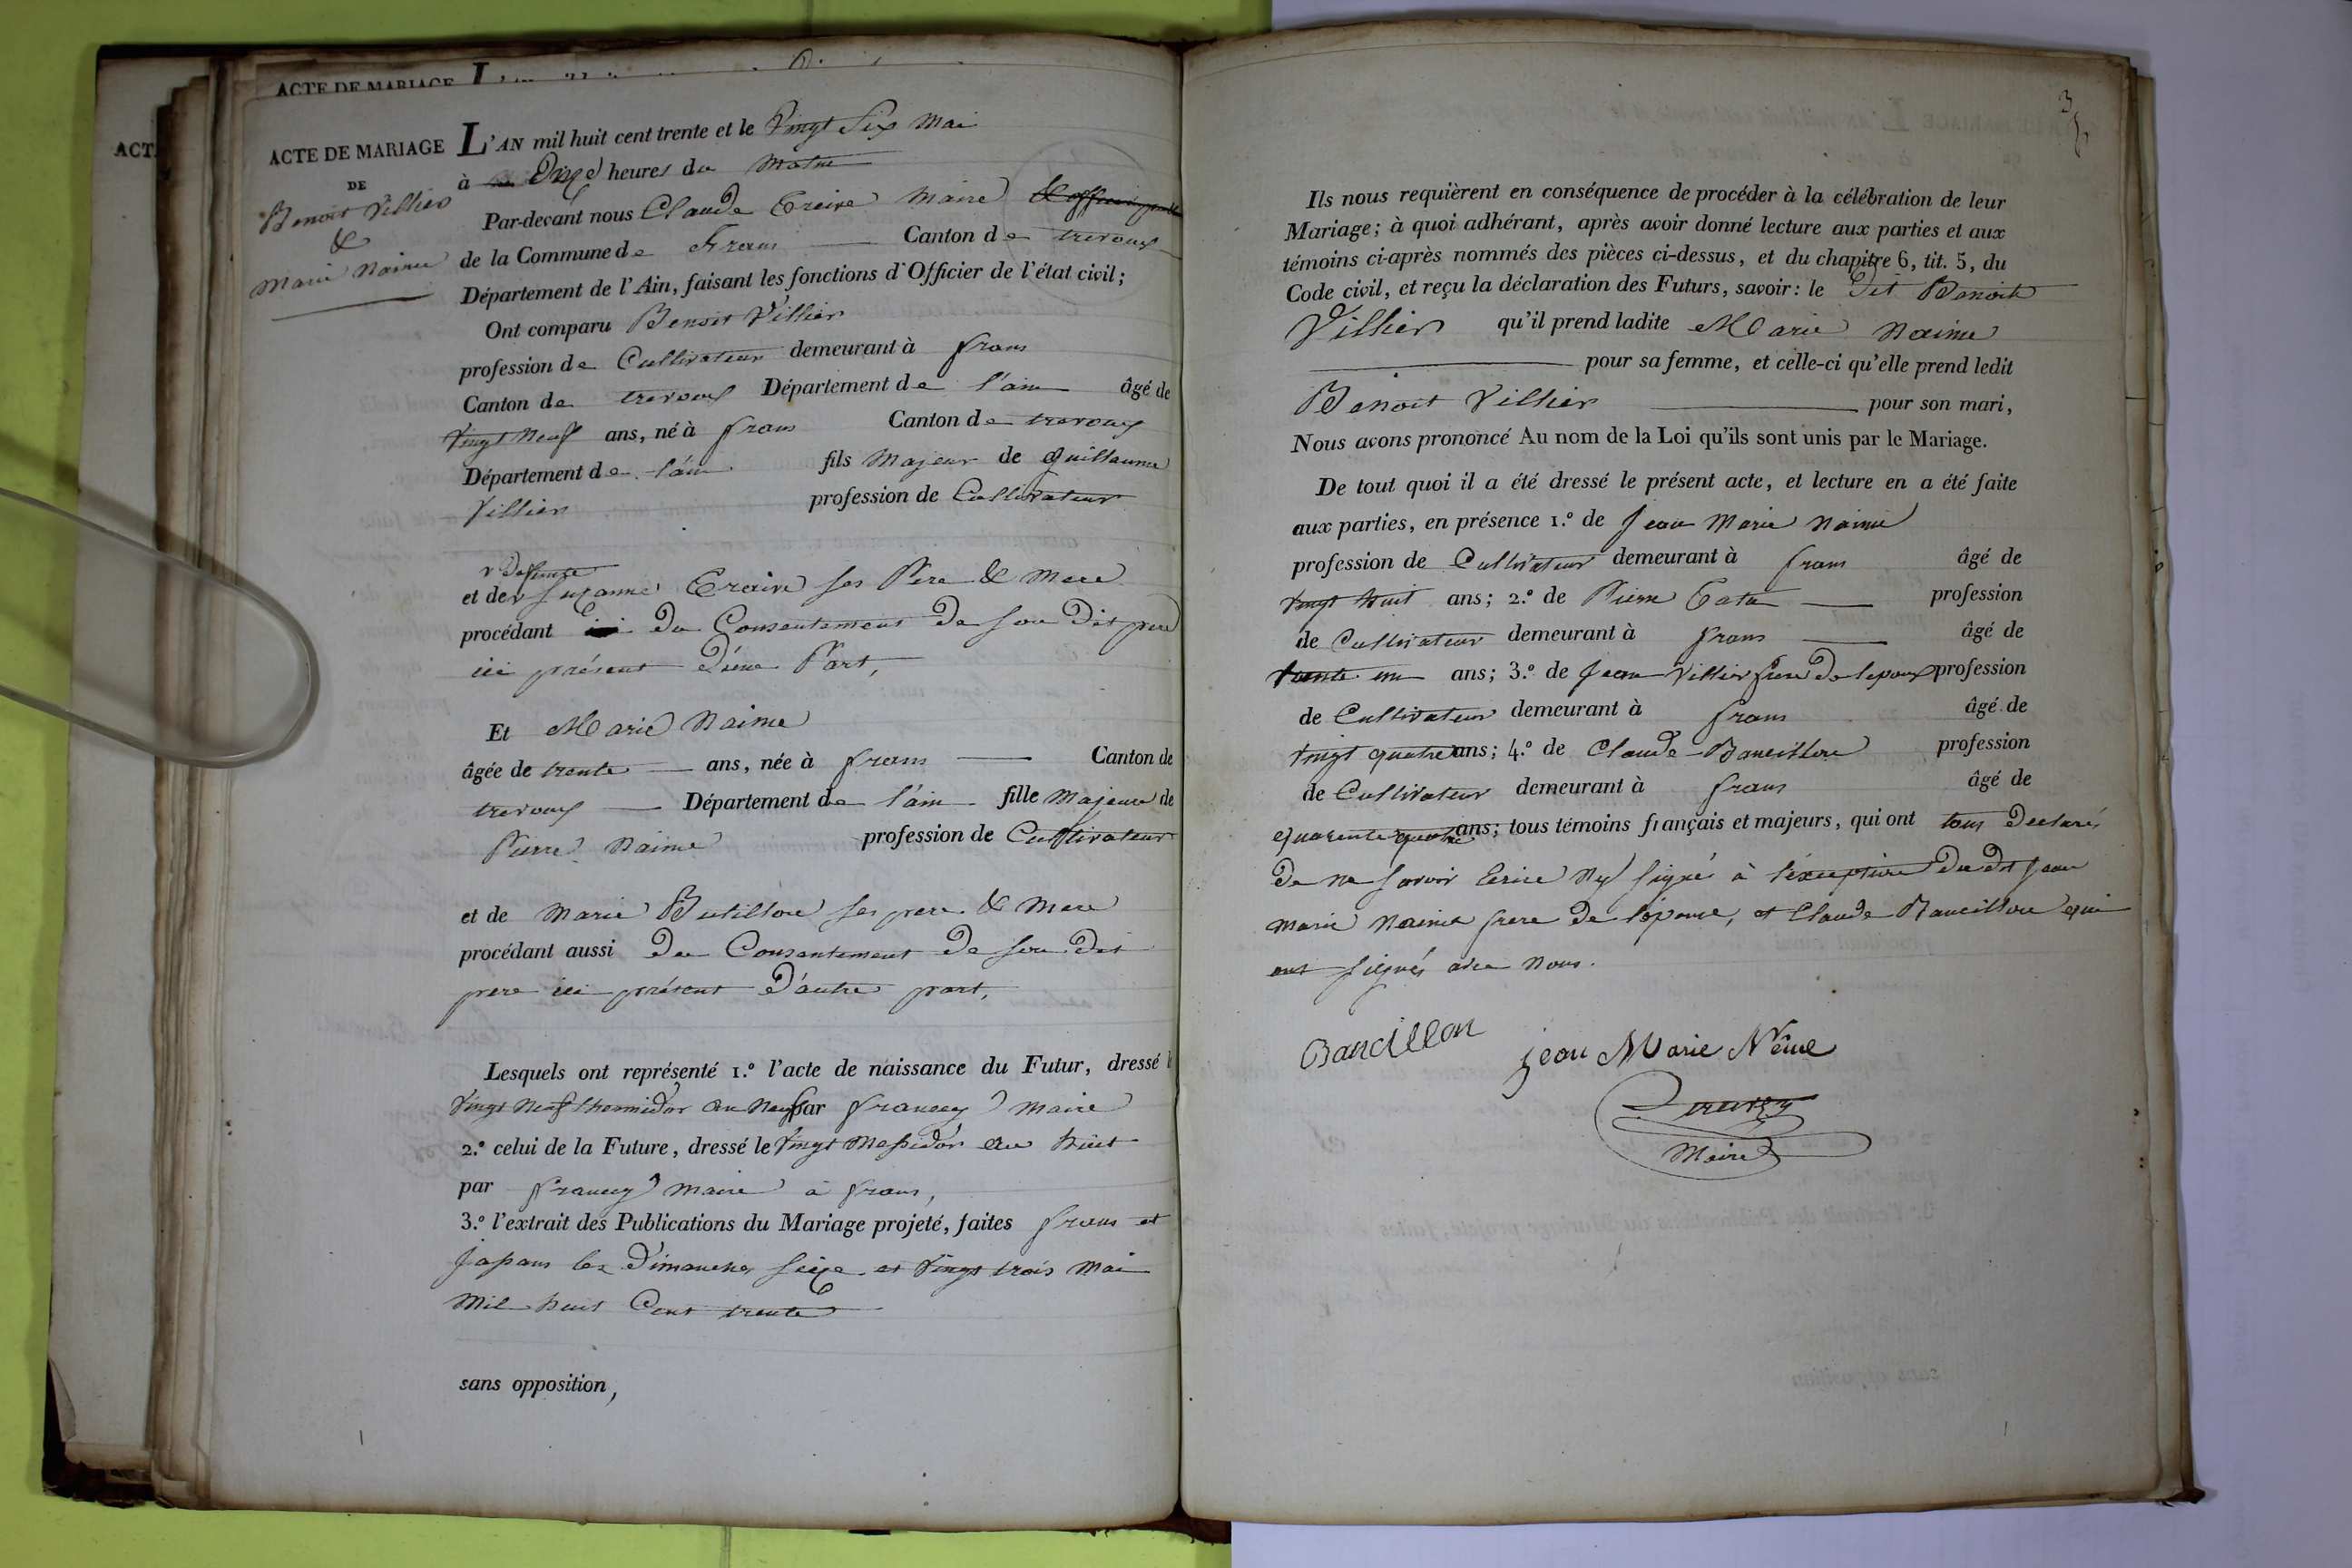 ACTE DE MARIAGE
ACT
ACTE DE MARIAGE
DE
Benoit Villier
&
Marie Naime
L'AN mil huit cent trente et le Vingt Six Mai
à Onze heures du Matin
Par-devant nous Claude Creive Maire
de la Commune de Frans Canton de trevoux
Département de l'Ain, faisant les fonctions d'Officier de l'état civil;
Ont comparu Benoit Villier
profession de Cultivateur demeurant à frans
Canton de trevoux Département de l'ain âgé de
Vingt Neuf ans, né à frans Canton de trevoux
Département de l'ain fils Majeur de Guillaume
Villier profession de Cultivateur
v defunte
et de v Suzanne Creive ses Pere & Mere
procédant du Consentement de son dit pere
ici présent d'une Part,
Et Marie Naime
âgée de trente ans, née à frans Canton de
trevoux Département de l'ain fille Majeure de
Pierre Naime profession de Cultivateur
et de Marie Butillon ses pere & Mere
procédant aussi du Consentement de son dit
pere ici présent d'autre part,
Lesquels ont représenté 1.º l'acte de naissance du Futur, dressé le
Vingt Neuf thermidor an Neuf par francey Maire
2.º celui de la Future, dressé le Vingt Messidor an huit
par francey Maire à frans,
3.º l'extrait des Publications du Mariage projeté, faites frans et
Jassans les Dimanches seize et Vingt trois Mai
Mil huit Cent trente
sans opposition,
Ils nous requièrent en conséquence de procéder à la célébration de leur
Mariage; à quoi adhérant, après avoir donné lecture aux parties et aux
témoins ci-après nommés des pièces ci-dessus, et du chapitre 6, tit. 5, du
Code civil, et reçu la déclaration des Futurs, savoir: le dit Benoit
Villier qu'il prend ladite Marie Naime
pour sa femme, et celle-ci qu'elle prend ledit
Benoit Villier pour son mari,
Nous avons prononcé Au nom de la Loi qu'ils sont unis par le Mariage.
De tout quoi il a été dressé le présent acte, et lecture en a été faite
aux parties, en présence 1.º de Jean Marie Naime
profession de Cultivateur demeurant à frans âgé de
Vingt huit ans; 2.º de Pierre profession
de Cultivateur demeurant à frans âgé de
trente un ans; 3.º de Jean Villier frere de lepoux profession
de Cultivateur demeurant à frans âgé de
Vingt quatre ans; 4.º de Claude Bancillon profession
de Cultivateur demeurant à frans âgé de
quarente quatre ans; tous témoins français et majeurs, qui ont tous declarés
de ne savoir Ecrire Ny signé à l'éxception du dit Jean
Marie Naime frere de l'épouse, et Claude Bancillon qui
ont signés avec Nous.
Bancillon
jean Marie Nême
Maire